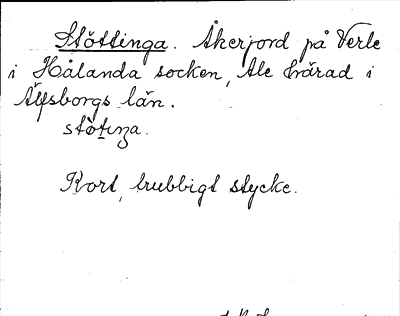 Stöttinga. Åkerjord på Verle
i Hålanda socken, Ale härad i
Älfsborgs län.
stötiŋa.
Kort, trubbigt stycke.